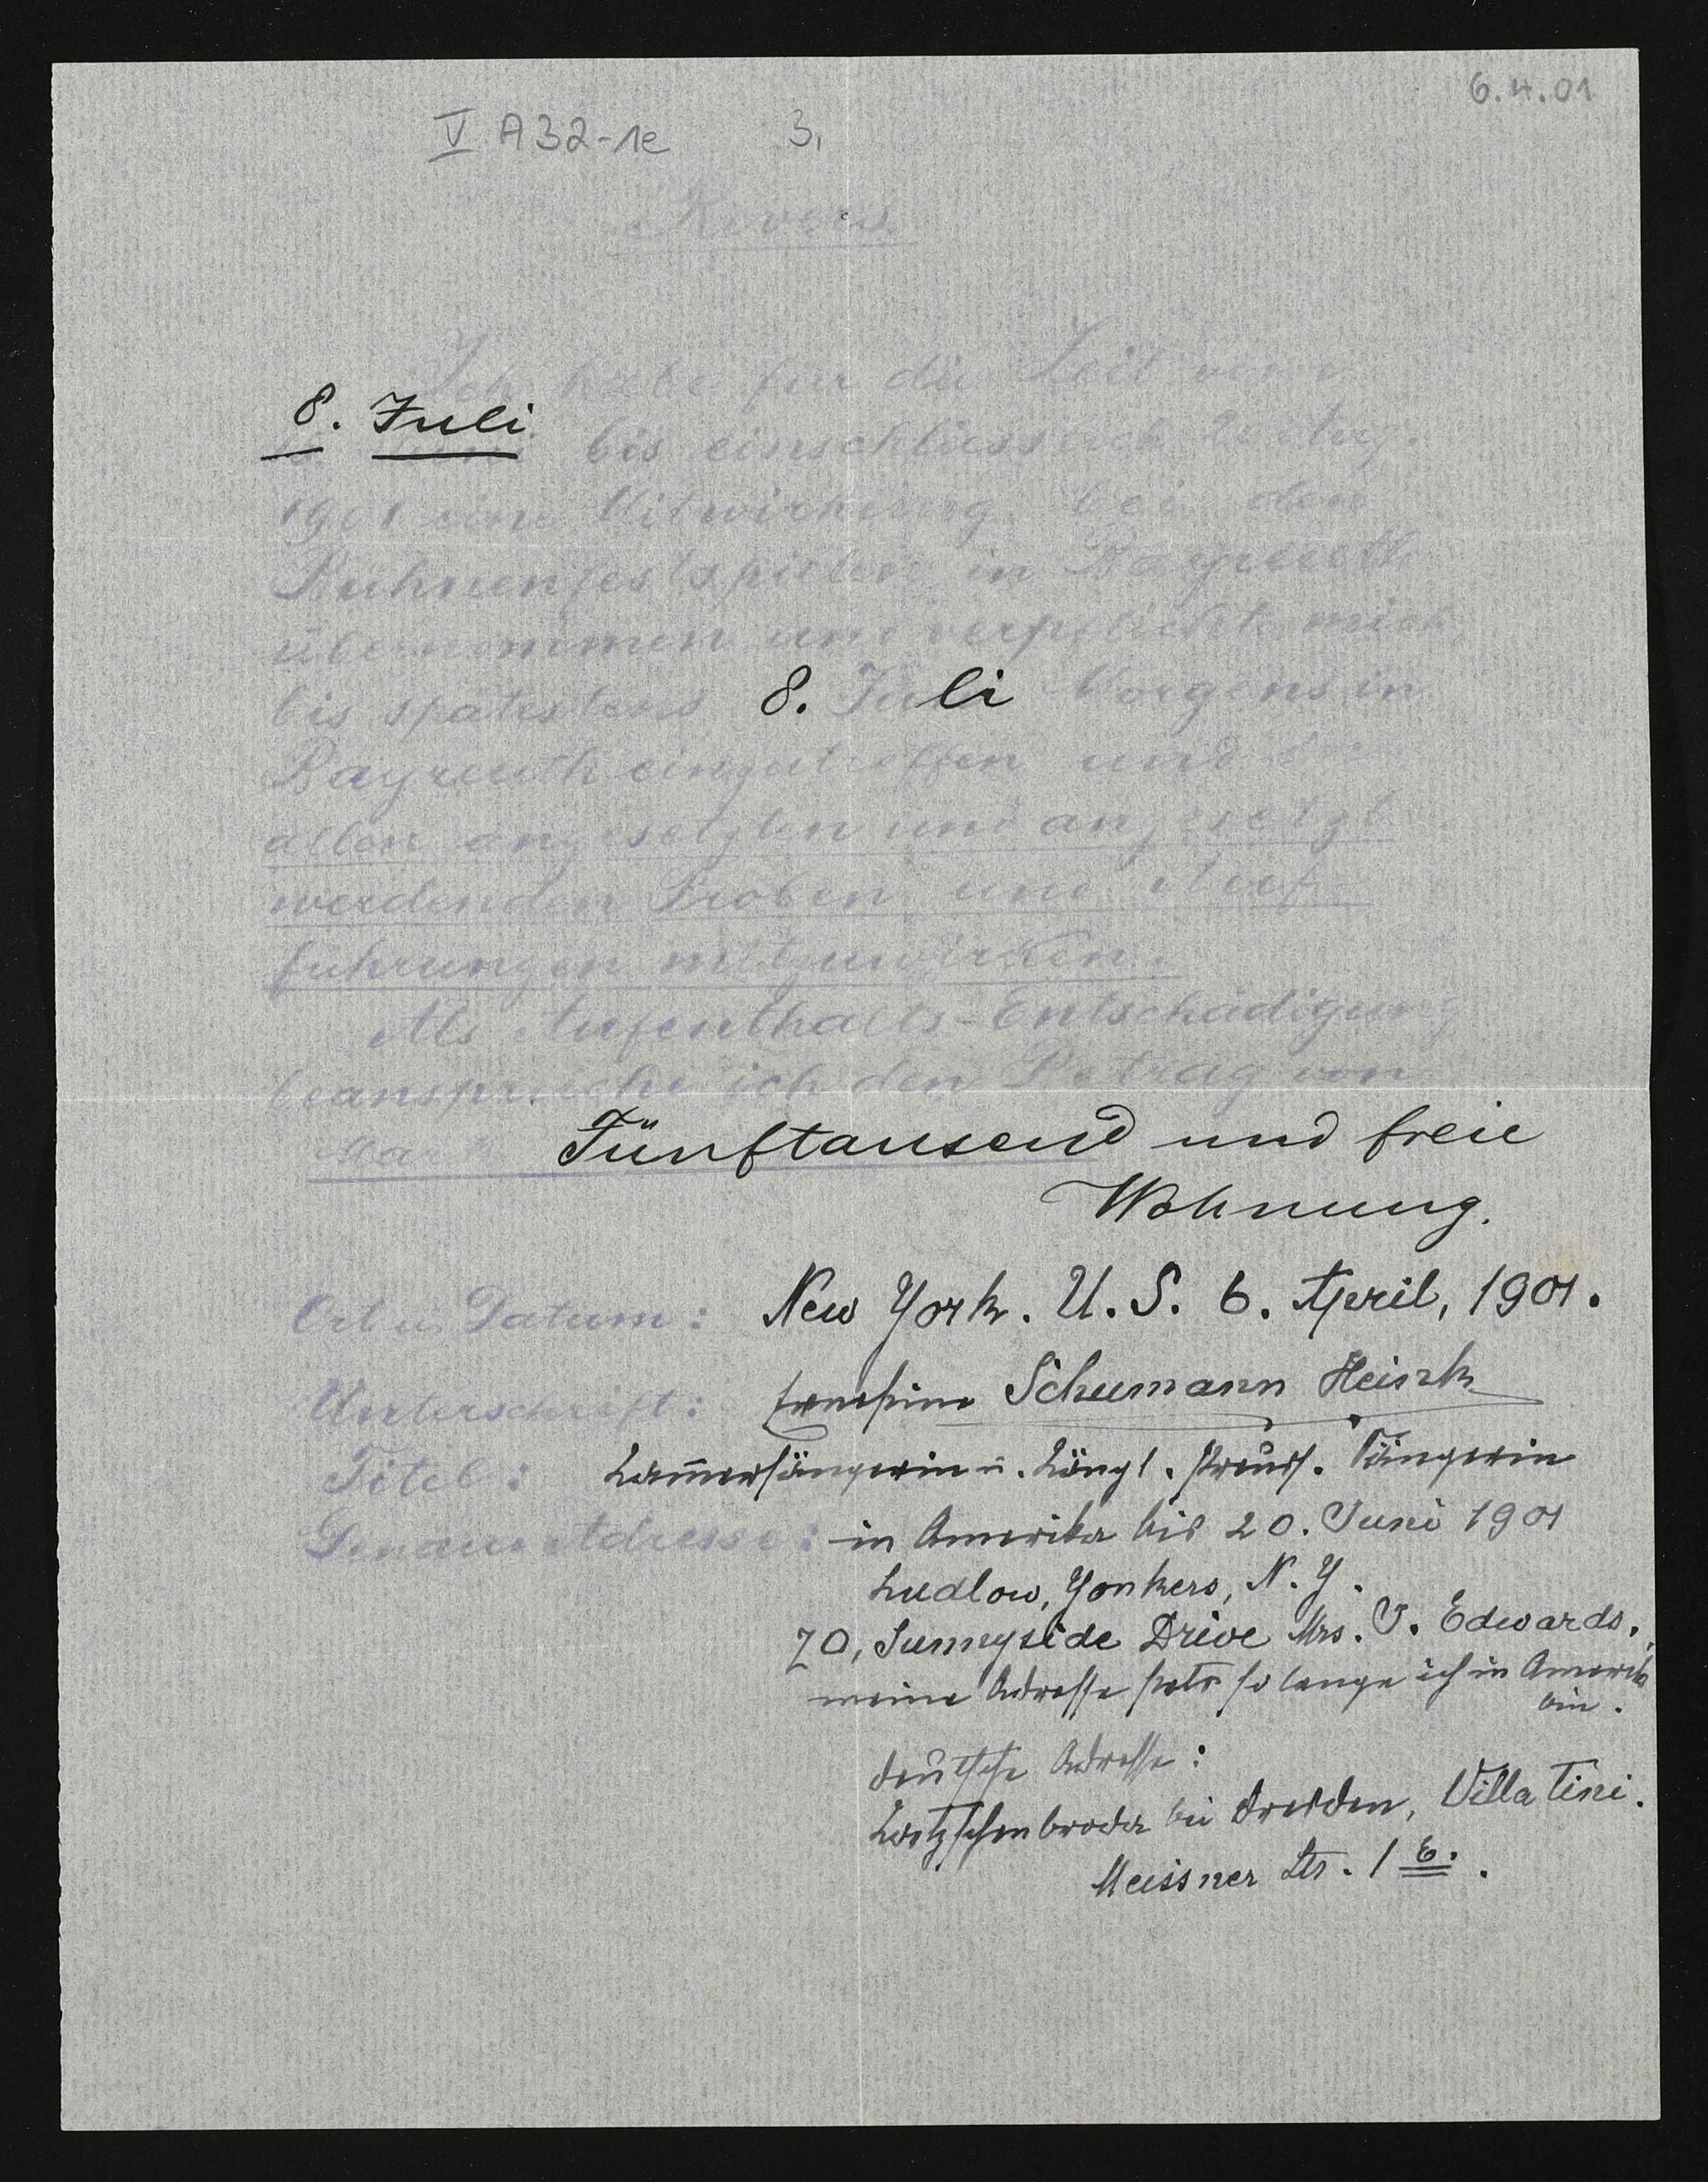 6.4.01
V A 32-1e 3,
Revers
Ich habe für die Zeit vom
8. Juli bis einschliesslich Aug.
1901 eine Mitwirkung bei den
Bühnenfestspielen in Bayreuth
übernommen und verpflichte mich,
bis spätestens 8. Juli Morgens in
Bayreuth einzutreffen und in
allen angesetzten und angesetzt
werdenden Proben und Auf-
führungen mitzuwirken.
Als Aufenthalts-Entschädigung
beanspruche ich den Betrag von
Mark Fünftausend und freie
Wohnung.
Ort u. Datum: New York. U. S. 6. April, 1901.
Unterschrift: Ernestine Schumann Heink
Titel: Kammersängerin u. Königl. Preuss. Sängerin
Genaue Adresse: in Amerika bis 20. Juni 1901
Ludlow, Yonkers, N. Y.
70, Sunnyside Drive Mrs. J. Edwards.
meine Adresse stets so lange ich in Amerika
bin.
deutsche Adresse:
Kötzschenbroda bei Dresden, Villa Tini.
Meissner Str. 1 E.